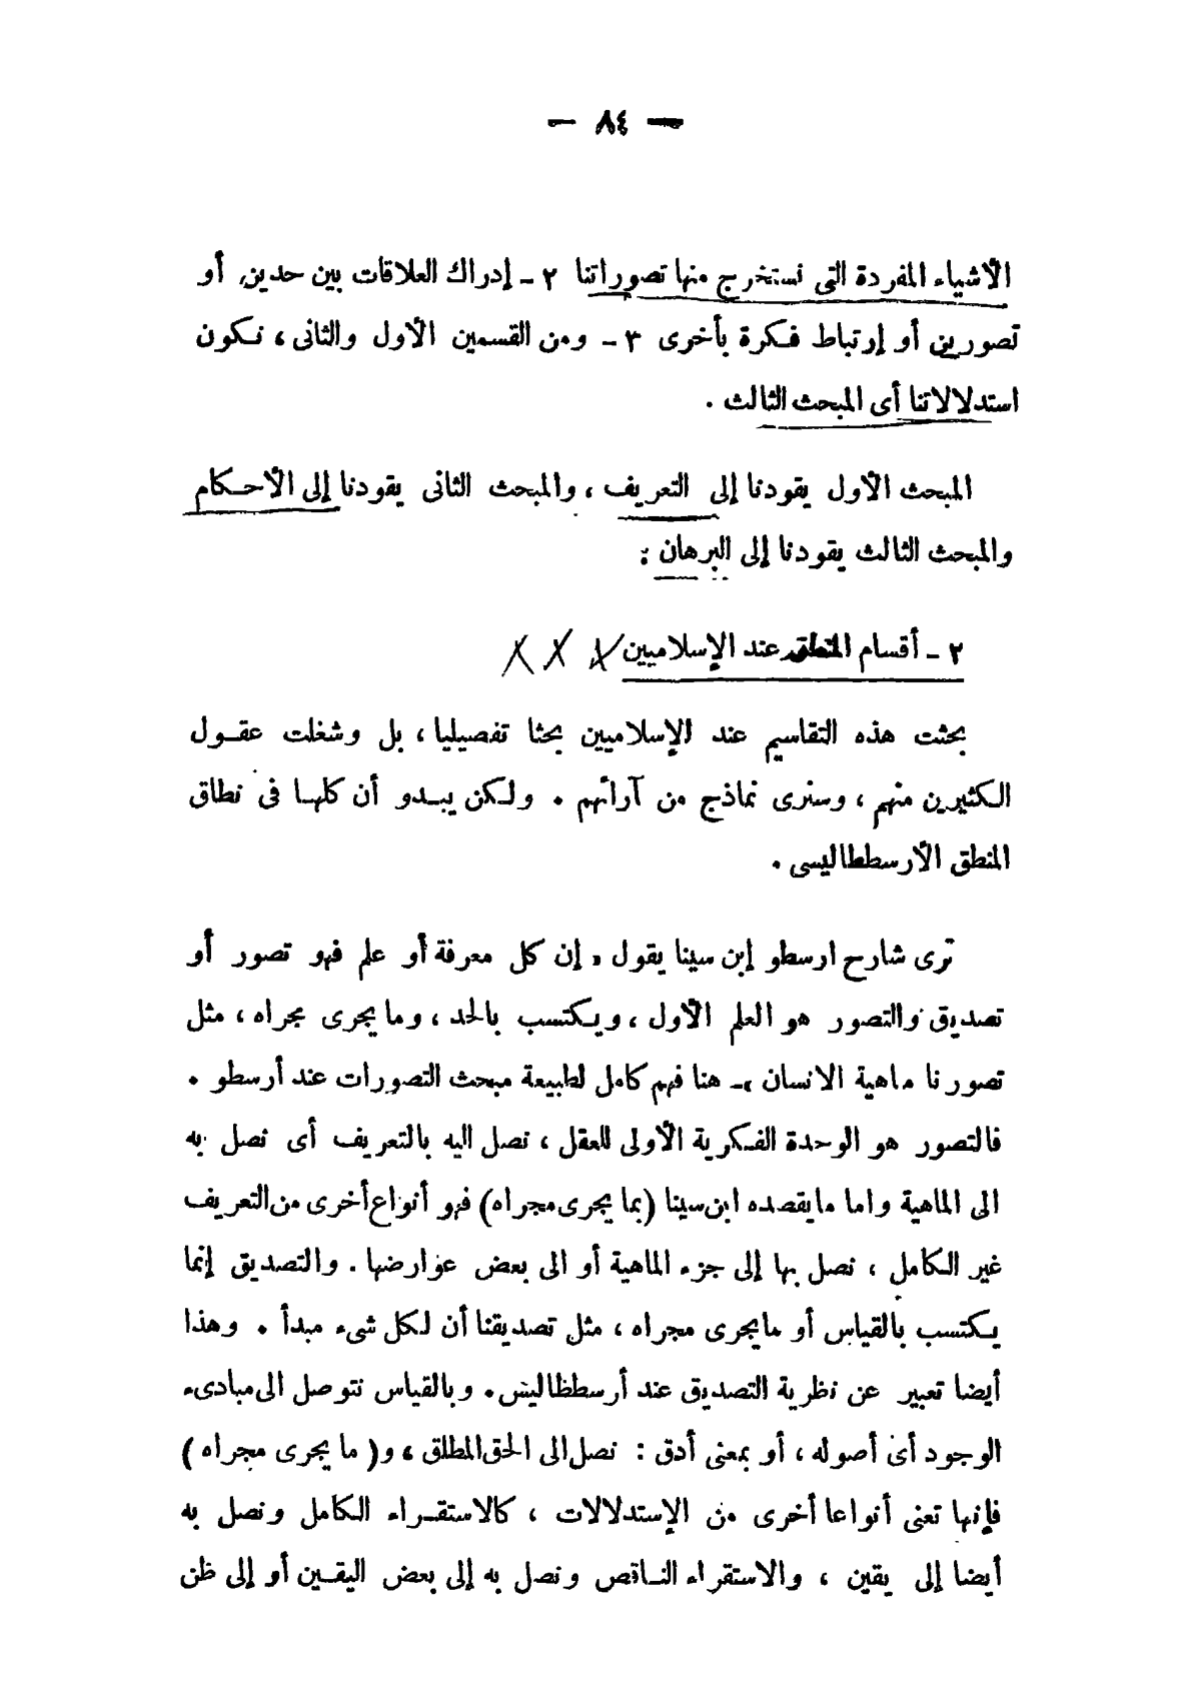 — ٨٤ —
الأشياء المفردة التى نستخرج منها تصوراتنا ٢ - إدراك العلاقات بين حدين، أو
تصورين أو إرتباط فكرة بأخرى ٣ - ومن القسمين الأول والثانى ، نكون
استدلالاتنا أى المبحث الثالث .
المبحث الأول يقودنا إلى التعريف ، والمبحث الثانى يقودنا إلى الأحكام
والمبحث الثالث يقودنا إلى البرهان :
٢ - أقسام المنطق عند الإسلاميين X X X
بحثت هذه التقاسيم عند الإسلاميين بحثا تفصيليا ، بل وشغلت عقول
الكثيرين منهم ، وسنرى نماذج من آرائهم . ولكن يبدو أن كلها فى نطاق
المنطق الأرسططاليسى .
ترى شارح ارسطو إبن سينا يقول « إن كل معرفة أو علم فهو تصور أو
تصديق والتصور هو العلم الأول ، ويكتسب بالحد ، وما يجرى مجراه ، مثل
تصورنا ماهية الانسان » - هنا فهم كامل لطبيعة مبحث التصورات عند أرسطو .
فالتصور هو الوحدة الفكرية الأولى للعقل ، نصل اليه بالتعريف أى نصل به
الى الماهية واما مايقصده ابن سينا (بما يجرى مجراه) فهو أنواع أخرى من التعريف
غير الكامل ، نصل بها إلى جزء الماهية أو الى بعض عوارضها . والتصديق إنما
يكتسب بالقياس أو مايجرى مجراه ، مثل تصديقنا أن لكل شىء مبدأ . وهذا
أيضا تعبير عن نظرية التصديق عند أرسططاليس . وبالقياس نتوصل الى مبادىء
الوجود أى أصوله ، أو بمعنى أدق : نصل الى الحق المطلق ، و( ما يجرى مجراه )
فإنها تعنى أنواعا أخرى من الإستدلالات ، كالاستقراء الكامل ونصل به
أيضا إلى يقين ، والاستقراء الناقص ونصل به إلى بعض اليقين أو إلى ظن